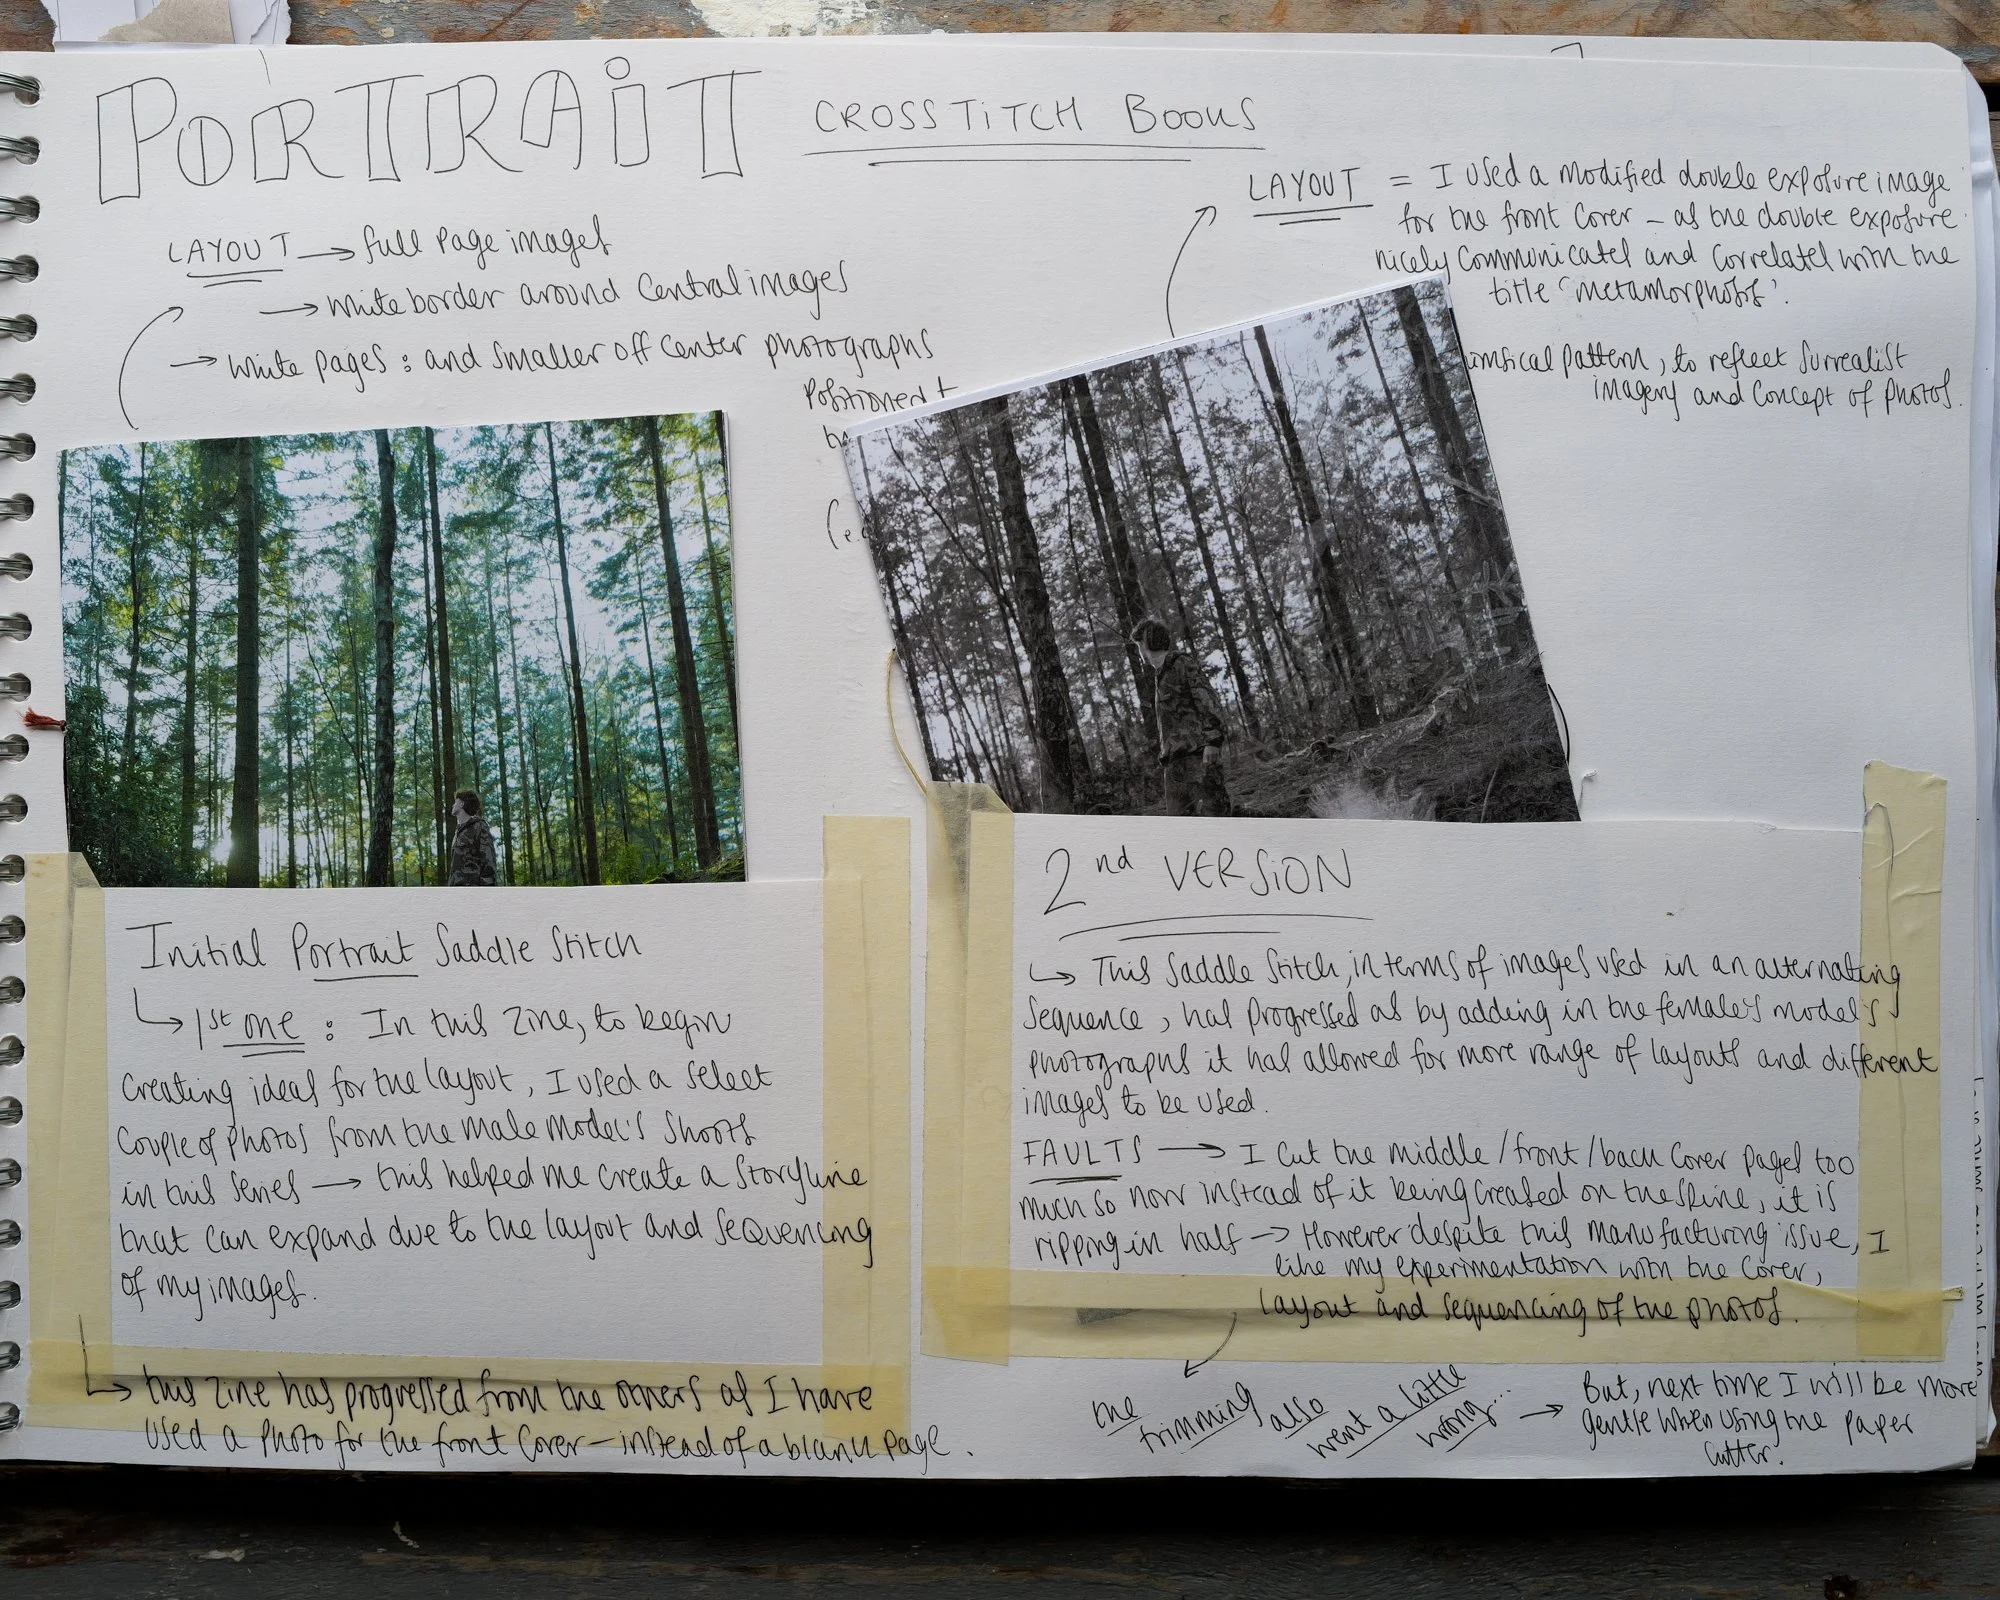 PORTRAIT CROSSTITCH BOOKS
LAYOUT → full page images
→ white border around central images
→ white pages : and smaller off center photographs
positioned
(e.
LAYOUT = I used a modified double exposure image
for the front cover – as the double exposure
nicely communicates and correlates with the
title 'metamorphosis'.
imsical pattern, to reflect surrealist
imagery and concept of photos.
Initial Portrait Saddle Stitch
↳ 1st one : In this zine, to begin
creating ideas for the layout, I used a select
couple of photos from the male model's shoots
in this series → this helped me create a storyline
that can expand due to the layout and sequencing
of my images.
↳ this zine has progressed from the others as I have
used a photo for the front cover – instead of a blank page.
2nd VERSION
↳ This saddle stitch, in terms of images used in an alternating
sequence, has progressed as by adding in the female's model's
photographs it has allowed for more range of layouts and different
images to be used.
FAULTS → I cut the middle/front/back cover pages too
much so now instead of it being creased on the spine, it is
ripping in half → However despite this manufacturing issue, I
like my experimentation with the cover,
layout and sequencing of the photos.
the trimming also went a little wrong...
→ But, next time I will be more
gentle when using the paper
cutter.